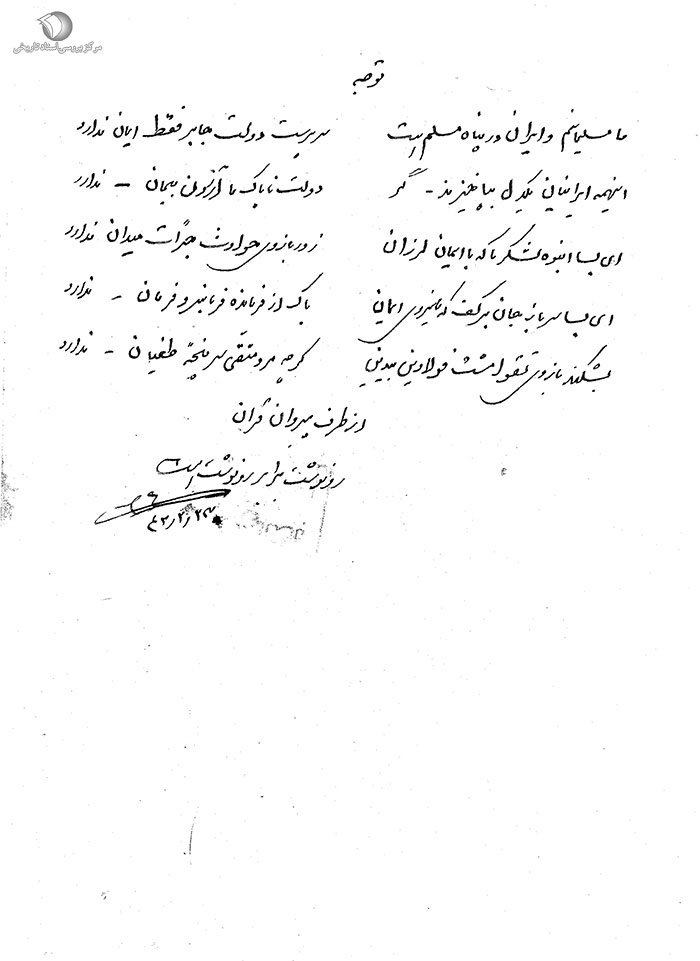 مرکز بررسی اسناد تاریخی
توجه
ما مسلمانیم و ایران در پناه مسلم است سرپرست دولت جابر فقط ایمان ندارد
اینهمه ایرانیان یکدل بپاخیزید - گر دولت ناپاک ما پیمان - ندارد
ای بسا انبوه لشکر که با ایمان لرزان زور بازوی حوادث جرأت میدان ندارد
ای بسا سرباز جان بر کف که با نیروی ایمان باک از فرمانده فرمانبر و فرمان - ندارد
بشکند بازوی تقوا مشت فولادین بیدینی گرچه مرد متقی سرپنجه طغیان - ندارد
از طرف پیروان قرآن
رونوشت برابر رونوشت است
۴۳٫۲٫۲۳